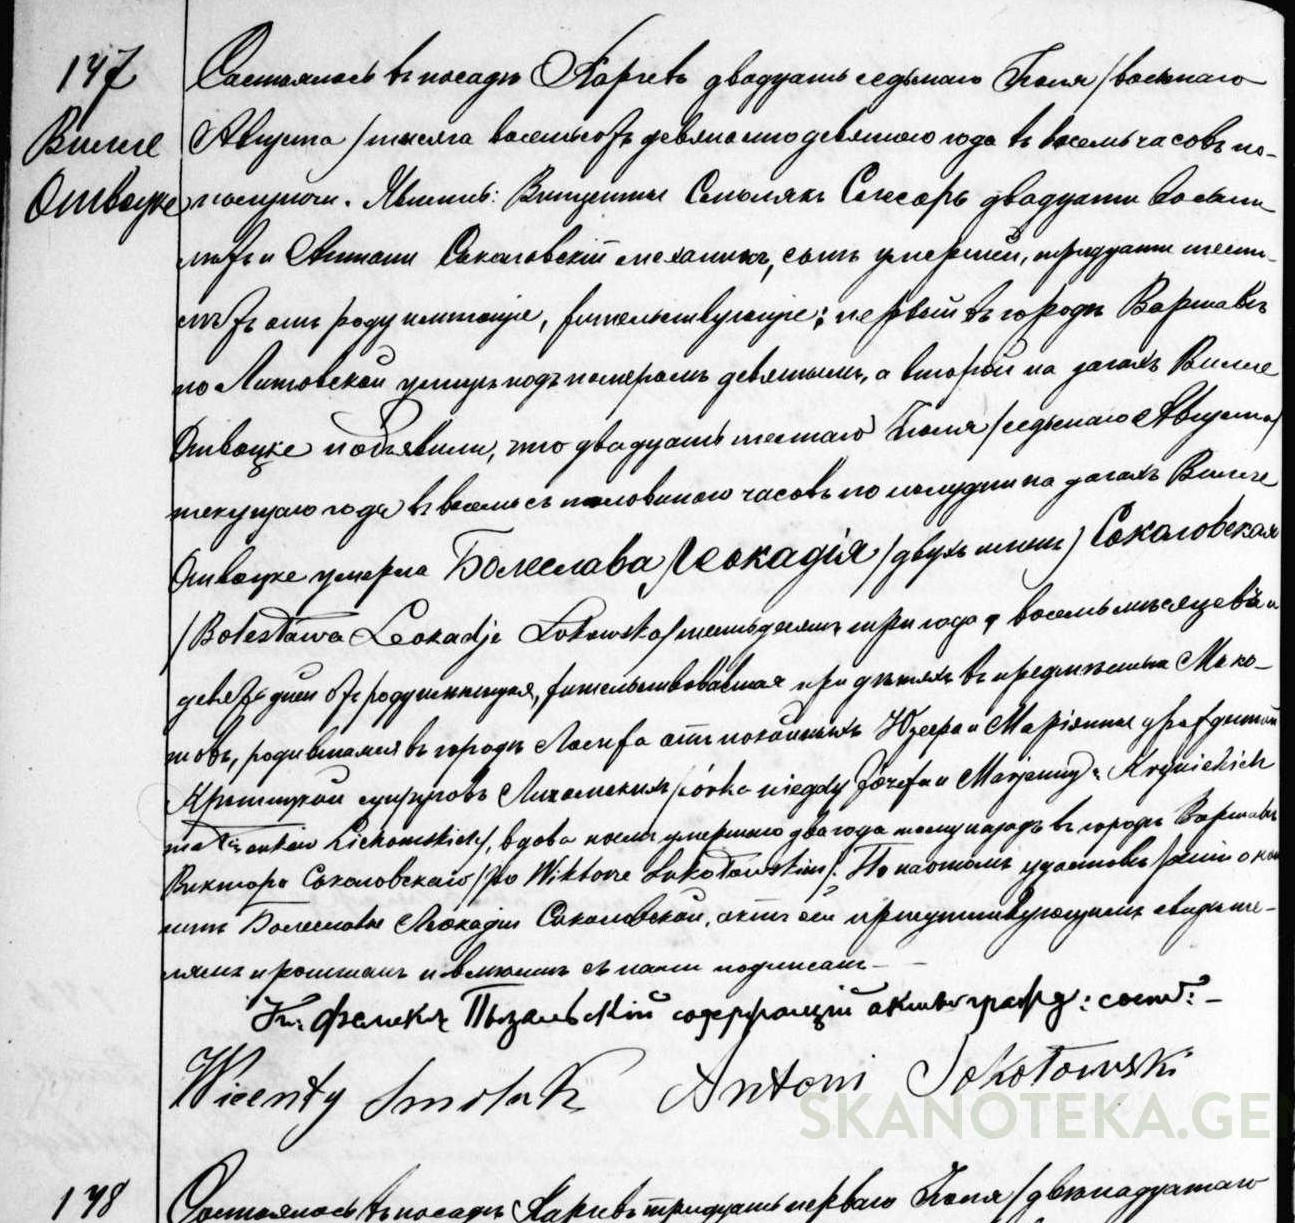 147
Вилле
Отвоцке
Состоялось въ посадѣ Карчевъ двадцать седьмаго Іюля /восьмаго
Августа/ тысяча восемьсотъ девяносто девятаго года въ восемь часовъ по
полуночи. Явились: Викентій Смолякъ Слесарь двадцати восьми
лѣтъ и Антони Соколовскій механикъ, сынъ умершей, тридцати шести
лѣтъ отъ роду имѣющіе, жительствующіе: первый въ городѣ Варшавѣ
по Литовской улицѣ подъ номеромъ девятымъ, а второй на дачахъ Вилле
Отвоцке и объявили, что двадцать шестаго Іюля /седьмаго Августа/
текущаго года въ восемь съ половиною часовъ по полудни на дачахъ Вилле
Отвоцке умерла Болеслава Леокадія /двухъ именъ/ Соколовская
/Bolesława Leokadja Sokołowska/ шестьдесятъ три года, восемь мѣсяцевъ и
девять дней отъ роду имѣющая, жительствовавшая при дѣтяхъ въ предмѣстьи Моко-
товъ, родившаяся въ городѣ отъ покойныхъ Юзефа и Маріянны урожденной
Крыницкой супруговъ Лихомскихъ /córka niegdy Józefa i Marjanny z Krynickich
małżonków Lichomskich/, вдова послѣ умершаго два года тому назадъ въ городѣ Варшавѣ
Виктора Соколовскаго /po Wiktorze Sokołowskim/. По настоящемъ удостовѣреніи о кон
чинѣ Болеславы Леокадіи Соколовской, актъ сей присутствующимъ свидѣте-
лямъ прочитанъ и вмѣстѣ съ нами подписанъ
Кс. Феликсъ содержащій акты гражд: сост:
Wicenty Smolak Antoni Sokołowski
SKANOTEKA.GE
148
Состоялось въ посадѣ Карчевъ тридцать перваго Іюля /двѣнадцатаго